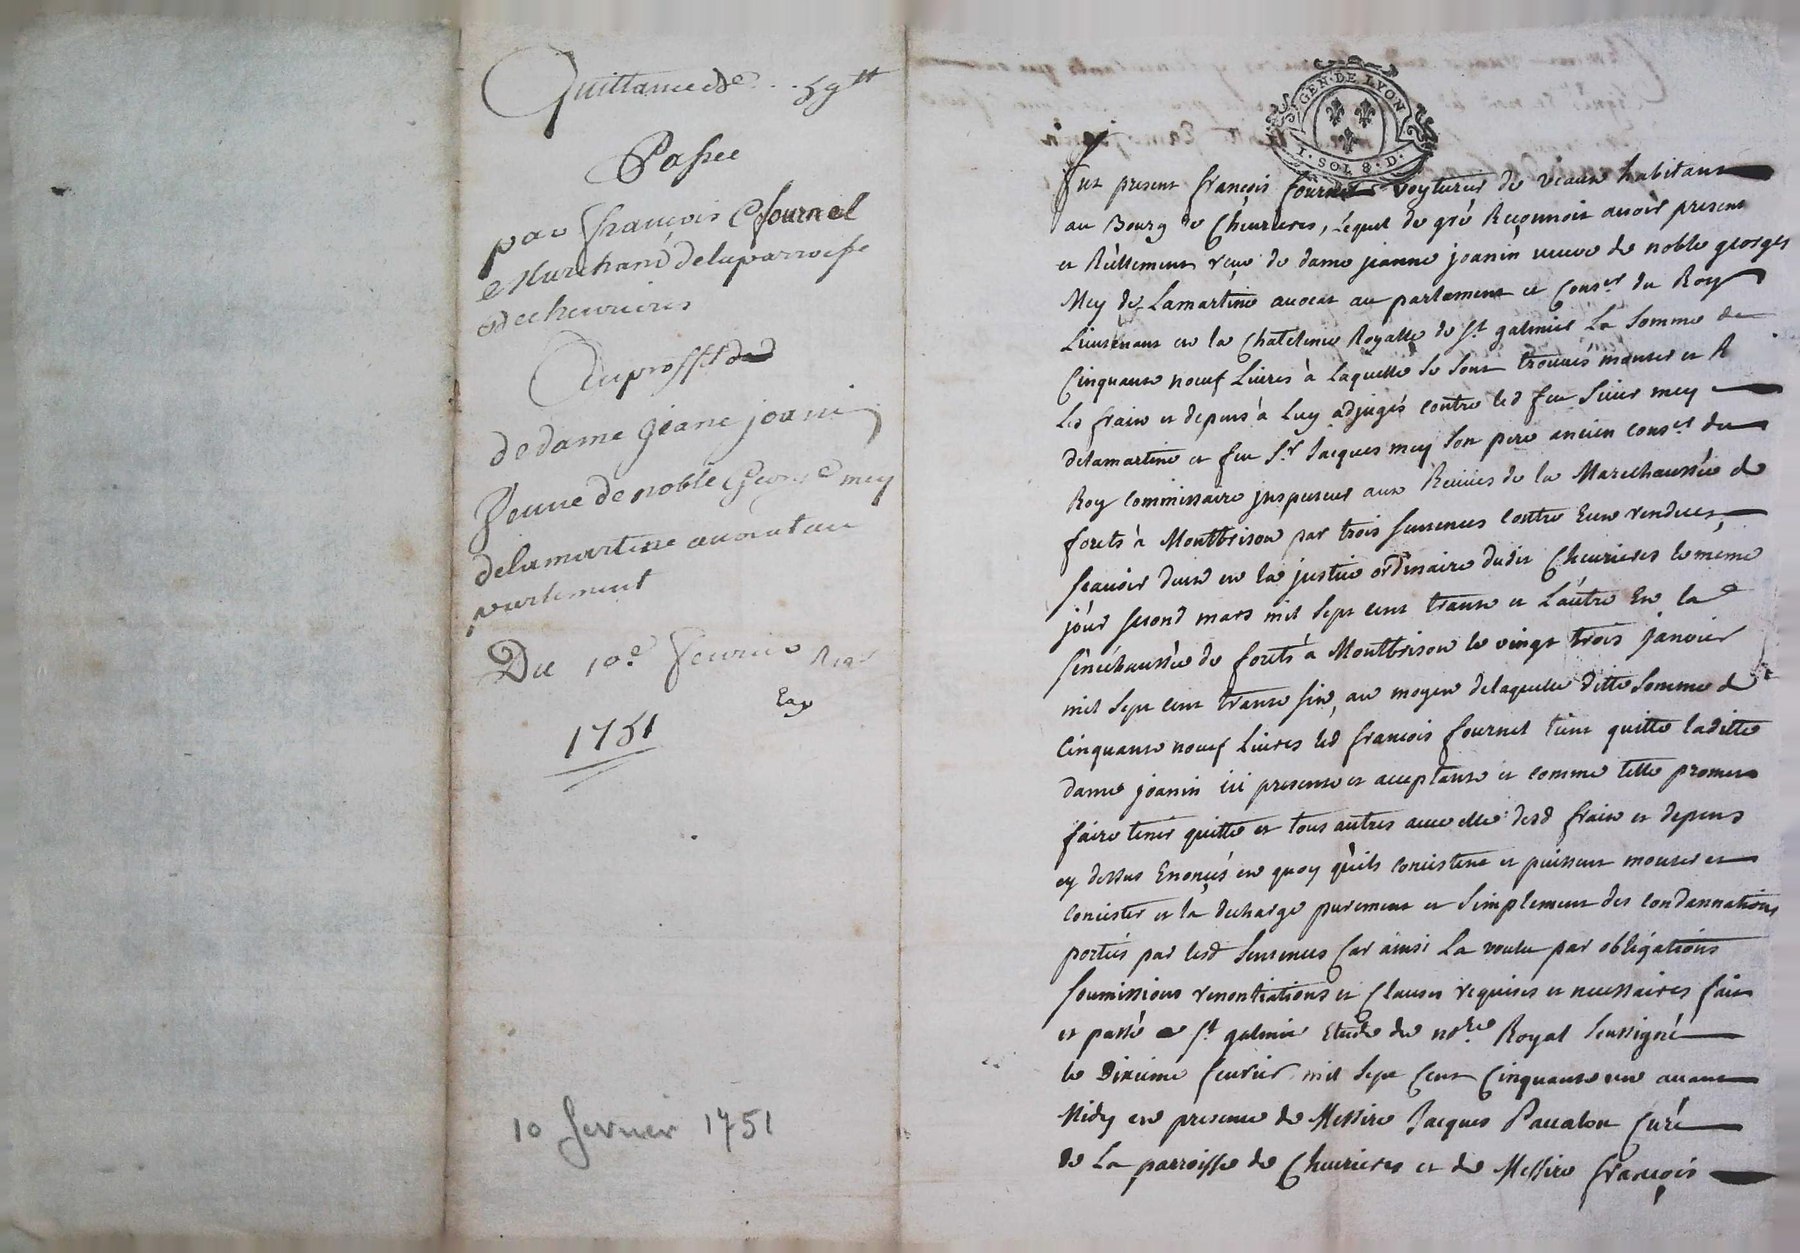 Quittance de .. 59tt
Passée
par françois fournel
Marchand delaparroisse
de cheurieres
Auproffit de
de dame Jeane joanin
veuve de noble George mey
delamartine auocat au
parlement
Du 10e feurier
1751
10 fevrier 1751
GEN·DE LYON
I·SOL 8·D·
fut present françois fournel voytureur de veaux habitant
au Bourg de Cheurieres, lequel de gré Reconnoit auoir present
et Réellement reçu de dame jeanne joanin veuve de noble georges
Mey de Lamartine auocat au parlement et Conser du Roy
Lieutenant en la Chatelenie Royalle de St galmier La Somme de
Cinquante noeuf Liures à Laquelle se sont trouués monter et R
Les frais et depens à Luy adjugés contre led feu Sieur mey
delamartine et feu Sr Jacques mey son pere ancien conser du
Roy Commissaire jnspecteur aux Reuües de la Marechaussée de
forets à Montbrison par trois sentences contre Eux rendues,
scauoir deux en la justice ordinaire dudit Cheurieres le même
jour second mars mil sept cent trente et L'autre En la
sénéchaussée de forets à Montbrison le vingt trois janvier
mil sept cent trente six, au moyen delaquelle ditte Somme de
Cinquante noeuf Liures led françois fournel tient quitte laditte
dame joanin icy presente et acceptante et comme telle promet
faire tenir quitte et tous autres auec elle desd frais et depens
cy dessus Enonçés en quoy qu'ils concistent et puissent monter et
Concister et la decharge purement et simplement des condannations
portées par lesd sentences Car ainsi La voulu par obligations
soumissions renontiations et Clauses requises et necessaires fait
et passé a St galmier Etude du nore Royal soussigné
le Dixieme feurier mil sept Cent Cinquante un auant
Midy en presence de Messire Jacques Pacalon Curé
de La parroisse de Cheurieres et de Messire françois